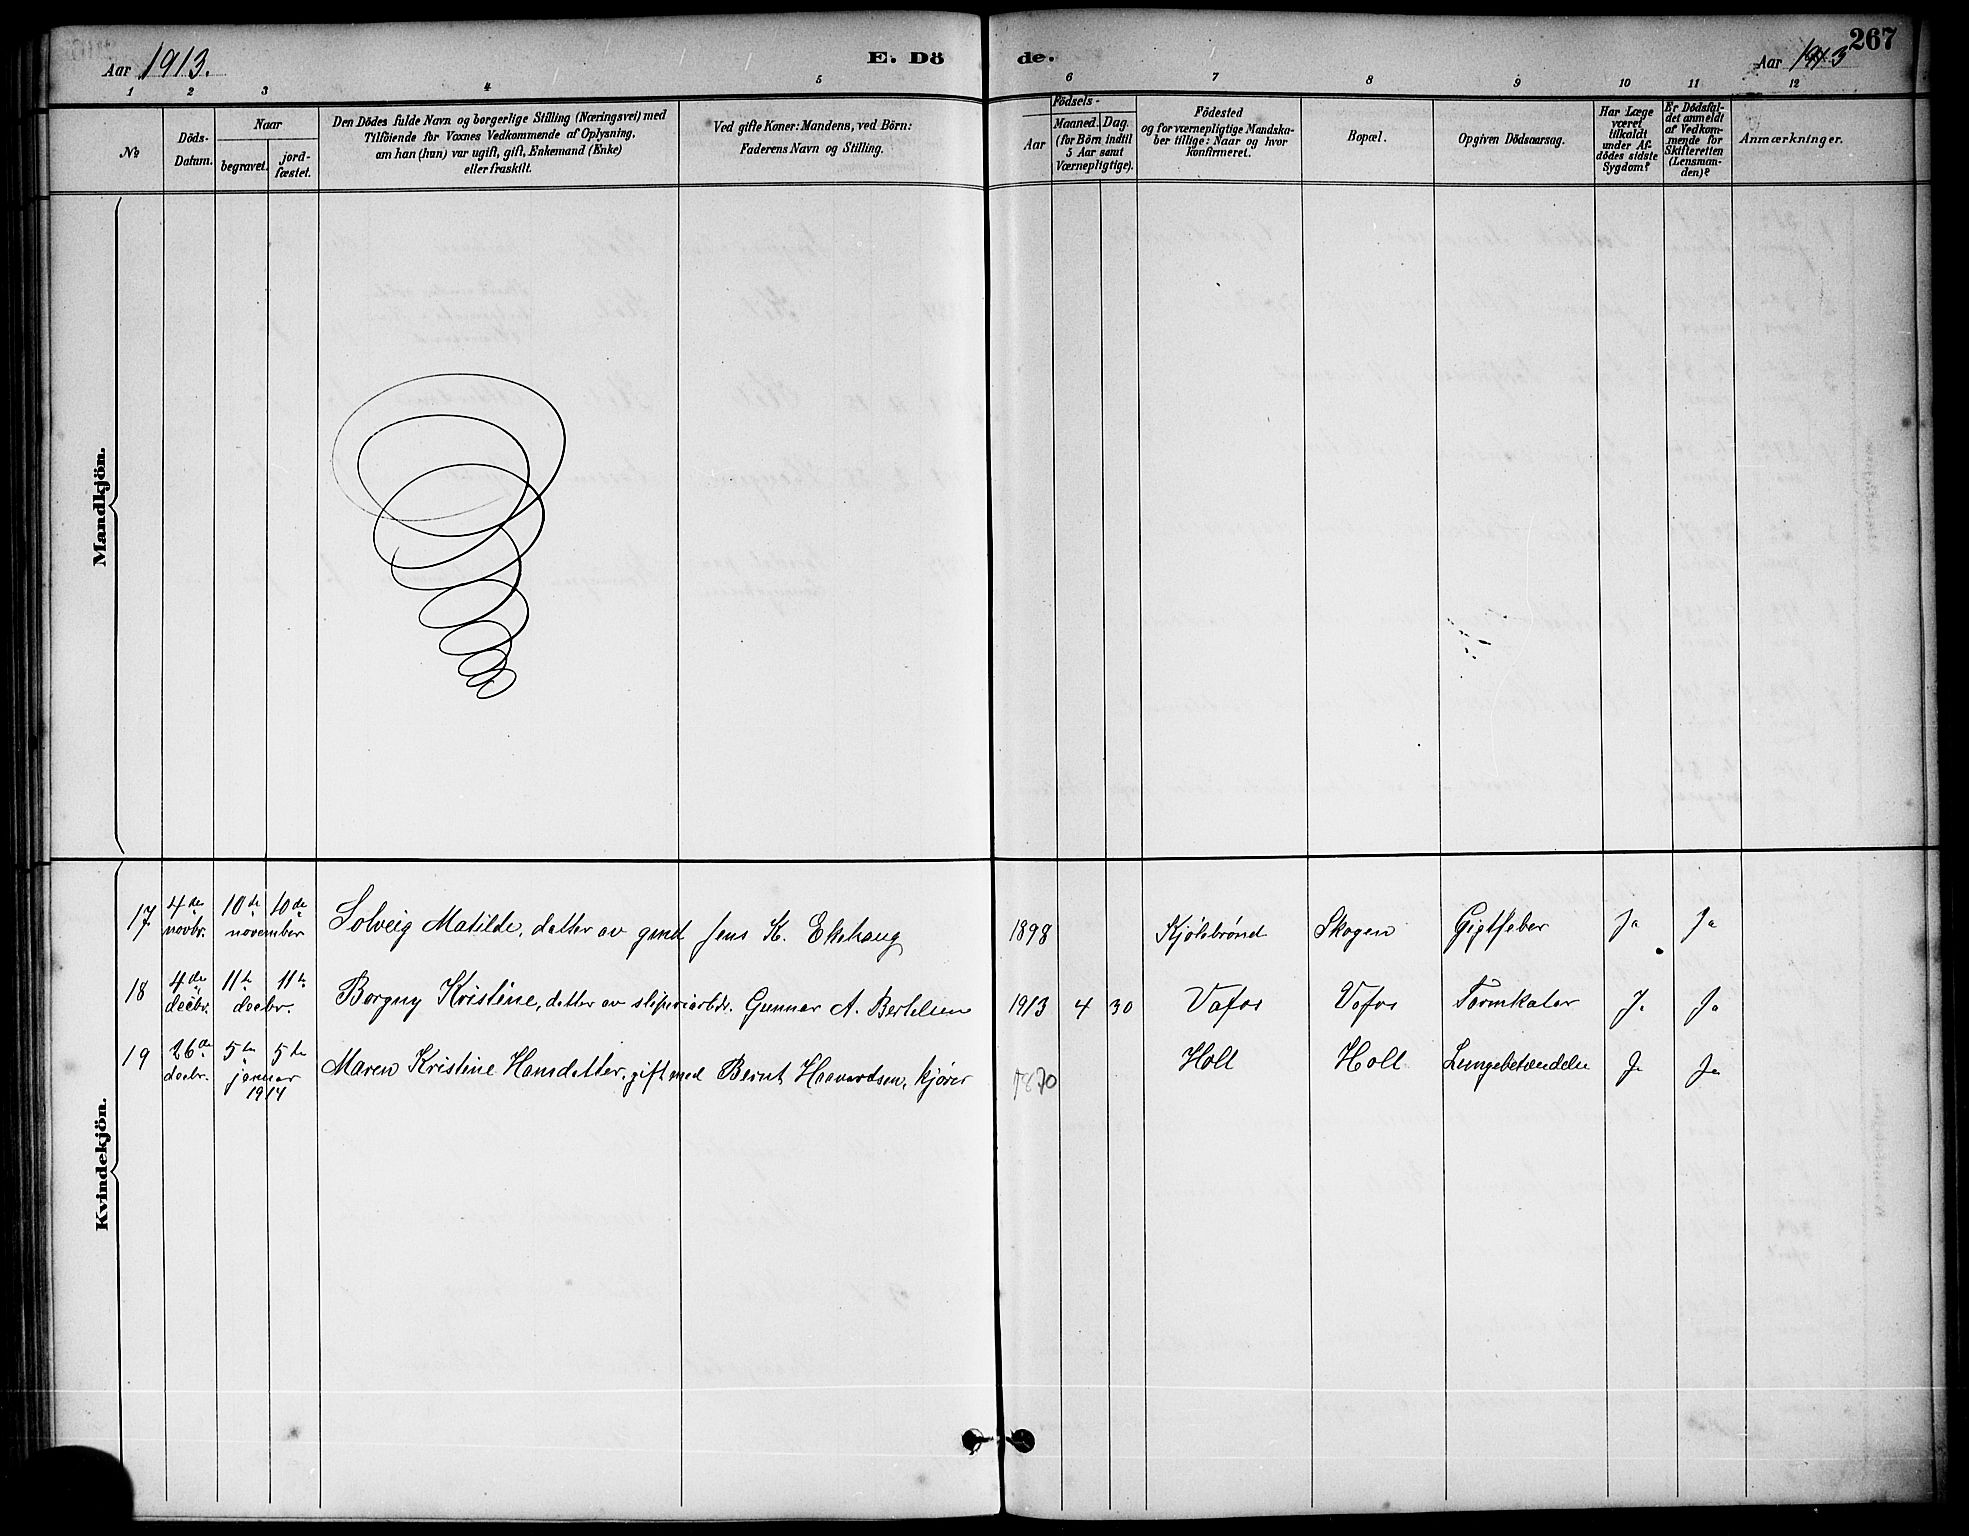 267
Aar 1913.
E. Dö
de.
Aar 1913
1 2 3 4 5 6 7 8 9 10 11 12
№
Döds-
Datum.
Naar
begravet.
jord-
fæstet.
Den Dödes fulde Navn og borgerlige Stilling (Næringsvei) med
Tilföiende for Voxnes Vedkommende af Oplysning,
om han (hun) var ugift, gift, Enkemand (Enke)
eller fraskilt.
Ved gifte Koner: Mandens, ved Börn:
Faderens Navn og Stilling.
Födsels-
Aar
Maaned. Dag.
(for Börn indtil
5 Aar samt
Værnepligtige).
Födested
og for værnepligtige Mandska-
ber tillige: Naar og hvor
konfirmeret.
Bopæl.
Opgiven Dödsaarsag.
Har Læge
været
tilkaldt
under Af-
dödes sidste
Sygdom?
Er Dödsfal-
det anmeldt
af Vedkom-
mende for
Skifteretten
(Lensman-
den)?
Anmærkninger.
Mandkjön.
Kvindekjön.
17 4de novbr. 10de 10de november Solveig Matilde, datter av gmd Jens K. Ekehaug 1898 Kjølebrønd Skogen Gigtfeber Ja Ja
18 4de decbr. 11te 11te decbr. Borgny Kristine, datter av sliperiarbdr. Gunnar A. Bertelsen 1913 4 30 Vafos Vafos Tarmkatar Ja Ja
19 26de decbr. 5te 5te januar 1914 Maren Kristine Hansdatter, gift med Bernt Haavardsen, kjører 1870 Holt Holt Lungebetændelse Ja Ja